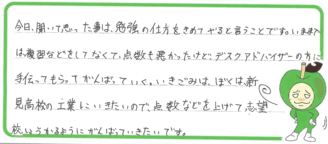 今日、聞いて思った事は、勉強の仕方をきめてやると言うことです。いままで
は複習などをしてなくて、点数も悪かったけどデスクアドバイザーの方に
手伝ってもらってがんばっていく。いきごみは、ぼくは新
見高校の工業にいきたいので、点数などを上げて志望
校にうかるようにがんばっていきたいです。